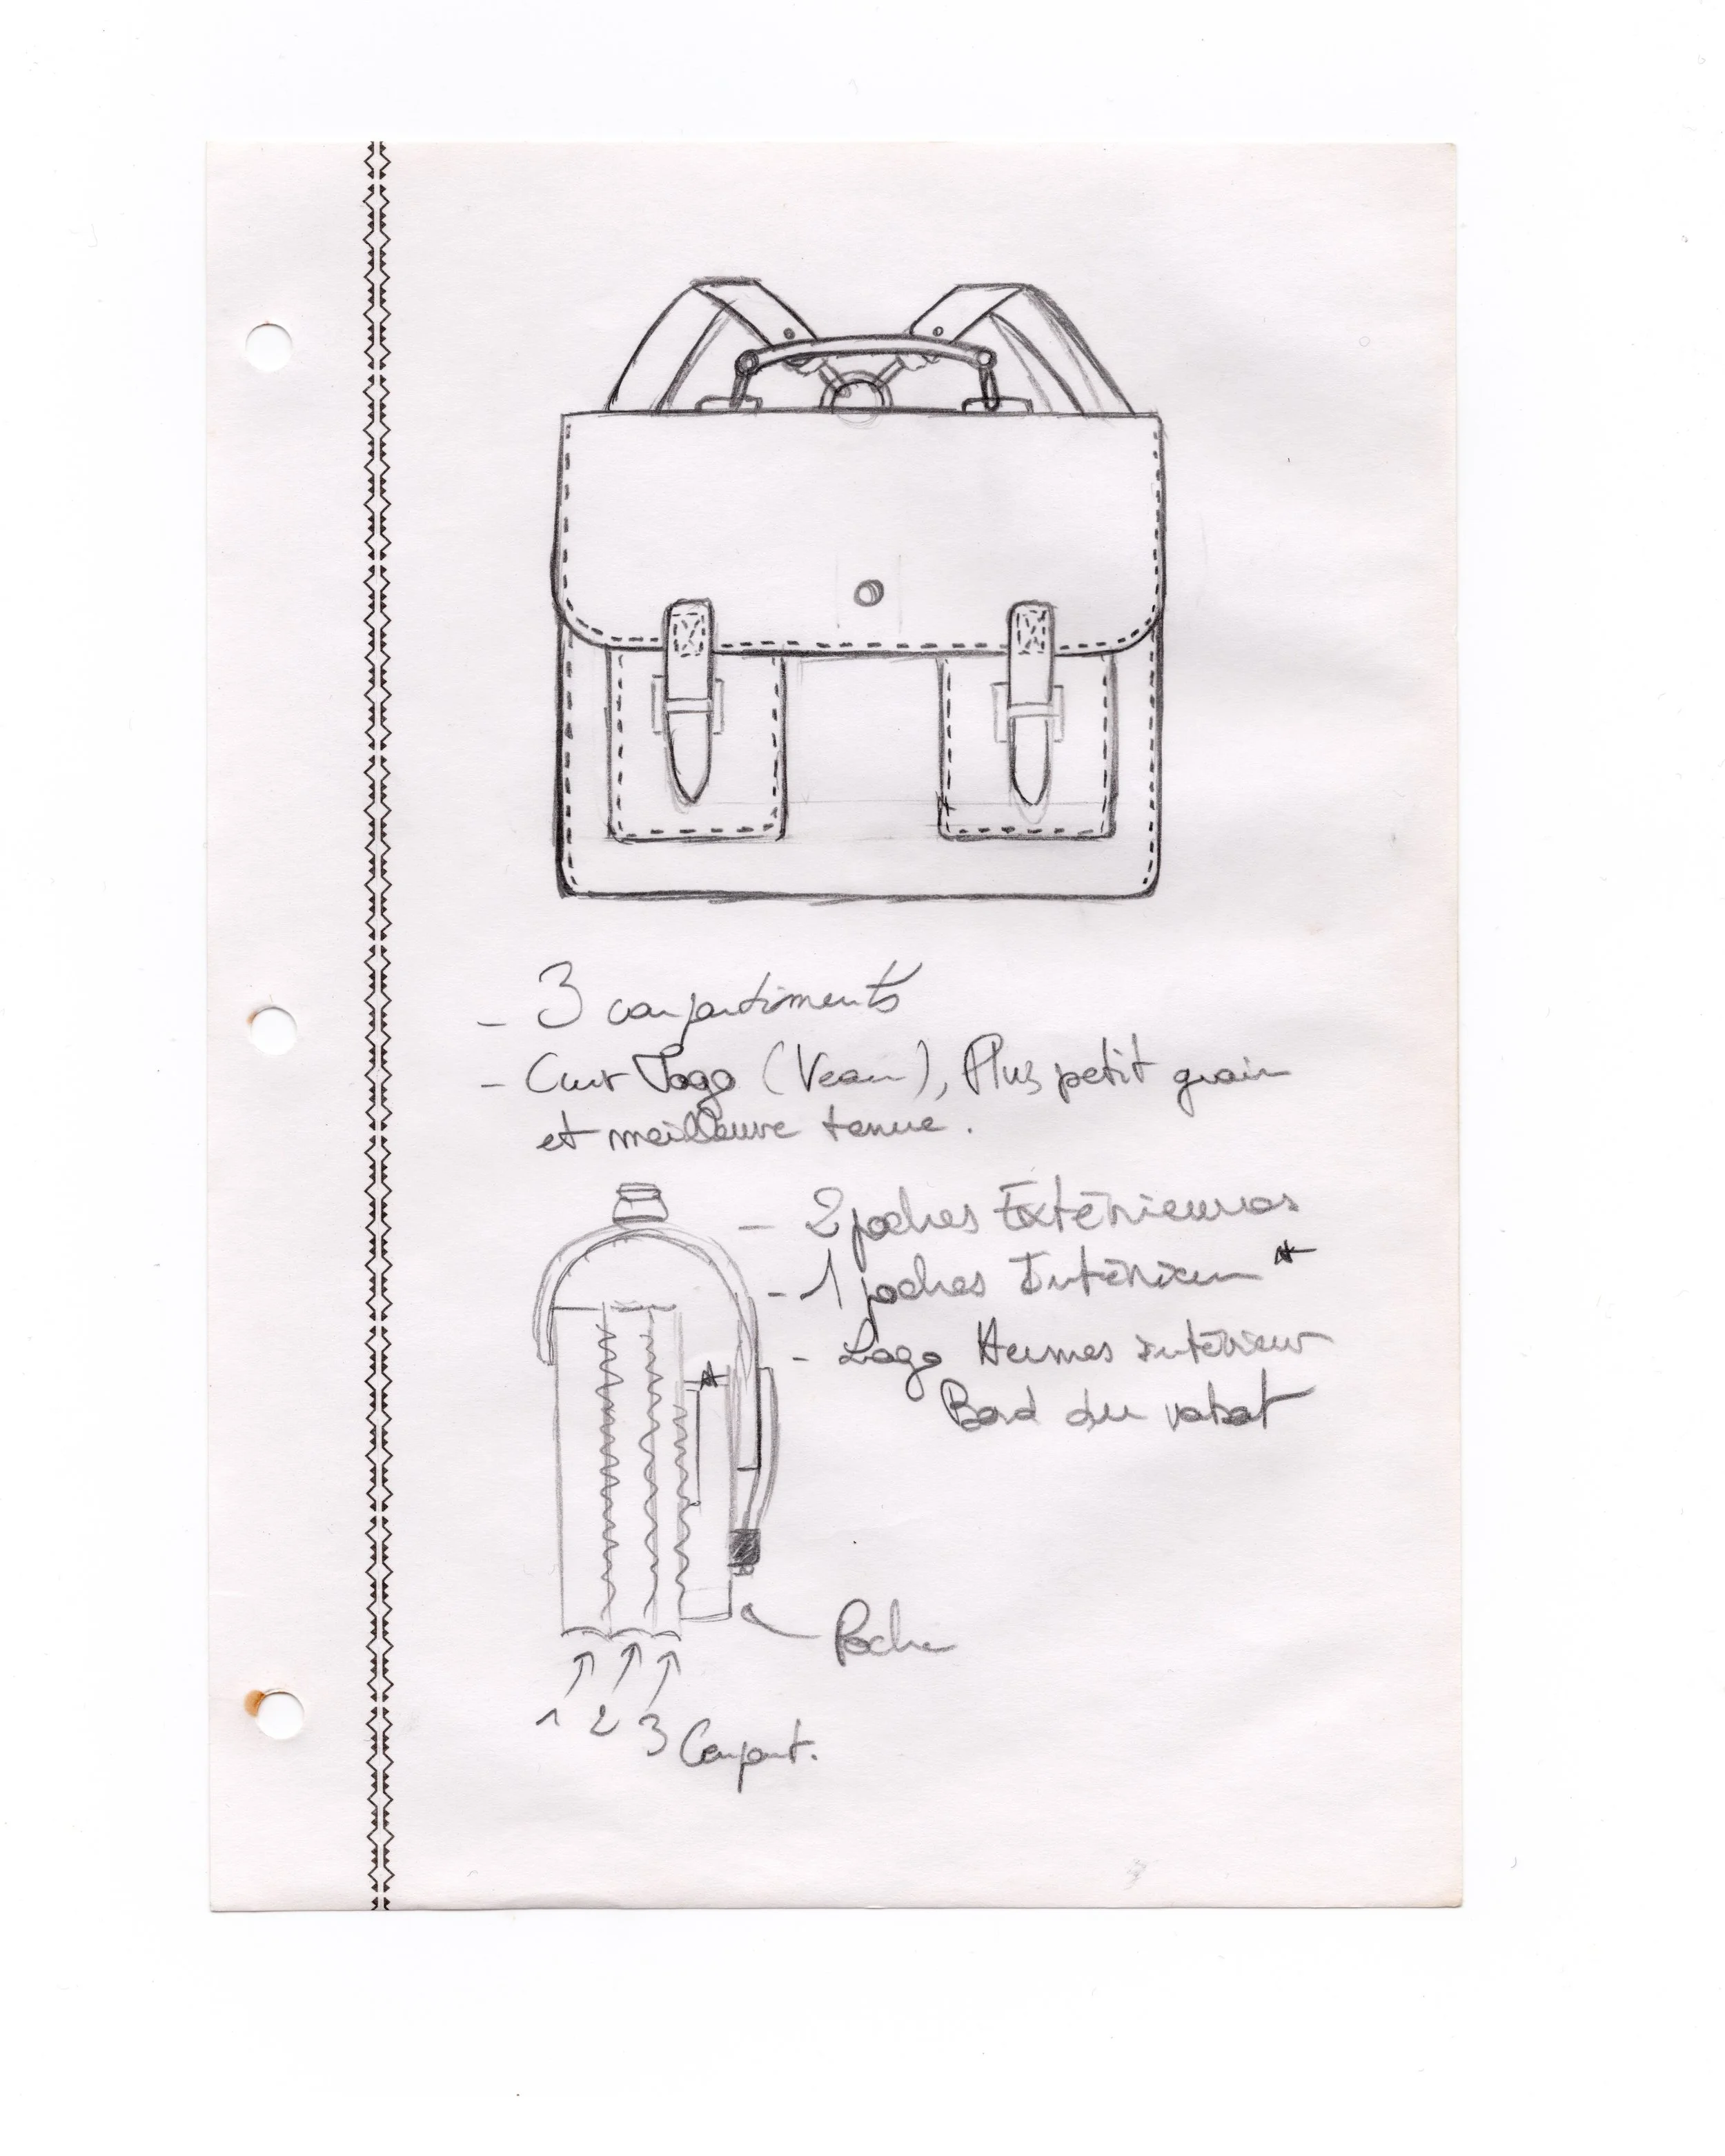 - 3 compartiments
- Cuir Togo (Veau), Plus petit grain
et meilleure tenue.
- 2 poches Extérieures
- 1 poches Intérieur *
- Logo Hermes intérieur
Bord du rabat
*
Poche
1 2 3 Compart.